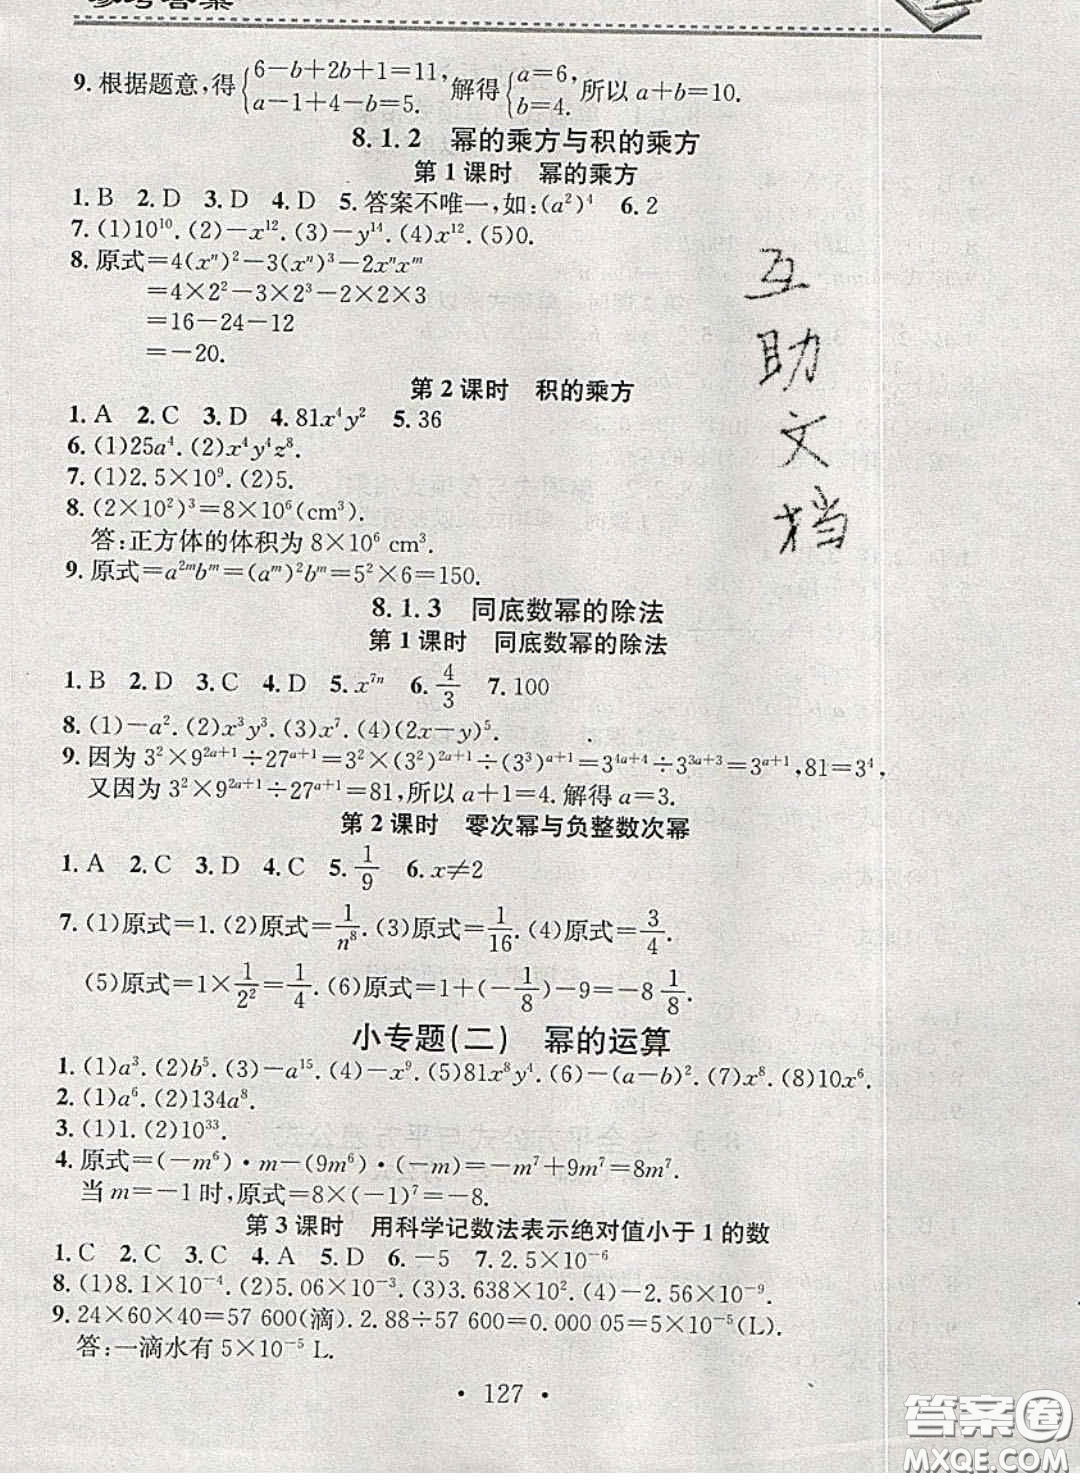 参考答案
9. 根据题意，得{6－b＋2b＋1＝11, a－1＋4－b＝5. 解得{a＝6, b＝4. 所以 a＋b＝10.
8.1.2 幂的乘方与积的乘方
第1课时 幂的乘方
1. B 2. D 3. D 4. D 5. 答案不唯一，如：(a²)⁴ 6. 2
7. (1)10¹⁰. (2)－x¹². (3)－y¹⁴. (4)x¹². (5)0.
8. 原式＝4(xⁿ)²－3(xⁿ)³－2xⁿxᵐ
＝4×2²－3×2³－2×2×3
＝16－24－12
＝－20.
第2课时 积的乘方
1. A 2. C 3. D 4. 81x⁴y² 5. 36
6. (1)25a⁴. (2)x⁴y⁴z⁸.
7. (1)2.5×10⁹. (2)5.
8. (2×10²)³＝8×10⁶(cm³).
答:正方体的体积为 8×10⁶ cm³.
9. 原式＝a²ᵐbᵐ＝(aᵐ)²bᵐ＝5²×6＝150.
8.1.3 同底数幂的除法
第1课时 同底数幂的除法
1. B 2. D 3. C 4. D 5. x⁷ⁿ 6. 4/3 7. 100
8. (1)－a². (2)x³y³. (3)x⁷. (4)(2x－y)⁵.
9. 因为 3²×9²ᵃ⁺¹÷27ᵃ⁺¹＝3²×(3²)²ᵃ⁺¹÷(3³)ᵃ⁺¹＝3⁴ᵃ⁺⁴÷3³ᵃ⁺³＝3ᵃ⁺¹, 81＝3⁴,
又因为 3²×9²ᵃ⁺¹÷27ᵃ⁺¹＝81,所以 a＋1＝4. 解得 a＝3.
第2课时 零次幂与负整数次幂
1. A 2. C 3. D 4. C 5. 1/9 6. x≠2
7. (1)原式＝1. (2)原式＝1/n⁸. (3)原式＝1/16. (4)原式＝3/4.
(5)原式＝1×1/2²＝1/4. (6)原式＝1＋(－1/8)－9＝－8 1/8.
小专题(二) 幂的运算
1. (1)a³. (2)b⁵. (3)－a¹⁵. (4)－x⁹. (5)81x⁸y⁴. (6)－(a－b)². (7)x⁸. (8)10x⁶.
2. (1)a⁶. (2)134a⁸.
3. (1)1. (2)10³³.
4. 原式＝(－m⁶)·m－(9m⁶)·(－m)＝－m⁷＋9m⁷＝8m⁷.
当 m＝－1 时,原式＝8×(－1)⁷＝－8.
第3课时 用科学记数法表示绝对值小于1的数
1. C 2. C 3. C 4. A 5. D 6. －5 7. 2.5×10⁻⁶
8. (1)8.1×10⁻⁴. (2)5.06×10⁻³. (3)3.638×10². (4)－2.56×10⁻⁹.
9. 24×60×40＝57 600(滴). 2.88÷57 600＝0.000 05＝5×10⁻⁵(L).
答:一滴水有 5×10⁻⁵ L.
· 127 ·
互
助
文
档
答案圈
MXQE.COM